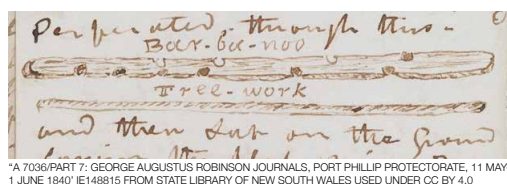 Perperated through this-
Bar-ba-noo
Tree-work
and then sat on the ground
"A 7036/PART 7: GEORGE AUGUSTUS ROBINSON JOURNALS, PORT PHILLIP PROTECTORATE, 11 MAY
1 JUNE 1840' IE148815 FROM STATE LIBRARY OF NEW SOUTH WALES USED UNDER CC BY 4.0